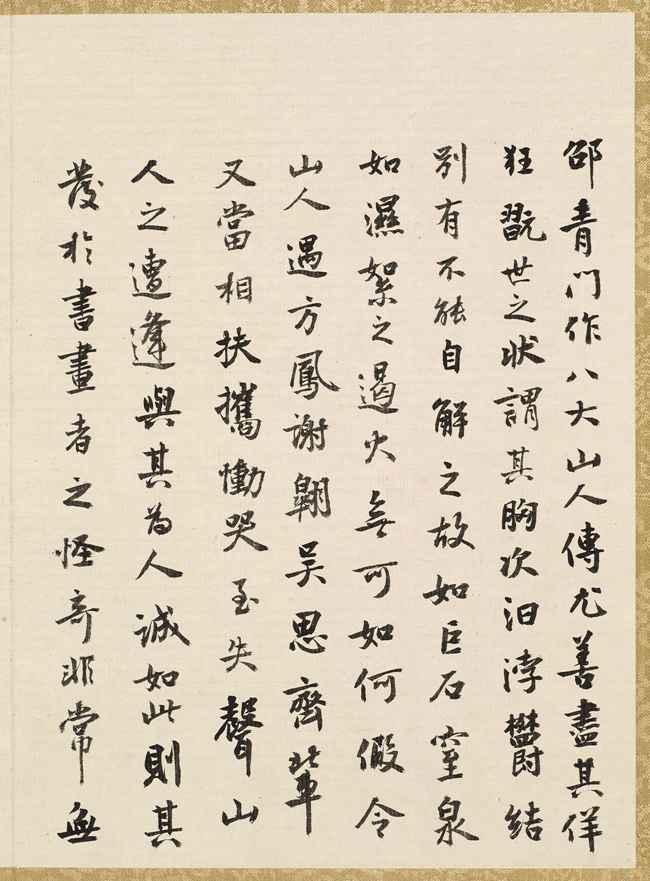 邵青门作八大山人傳尤善盡其佯
狂翫世之狀謂其胸次汩浡鬱結
別有不能自解之故如巨石窒泉
如濕絮之遏火無可如何假令
山人遇方鳳謝翱吴思齊輩
又當相扶攜慟哭至失聲山
人之遭逢與其為人誠如此則其
發於書畫者之怪奇非常無